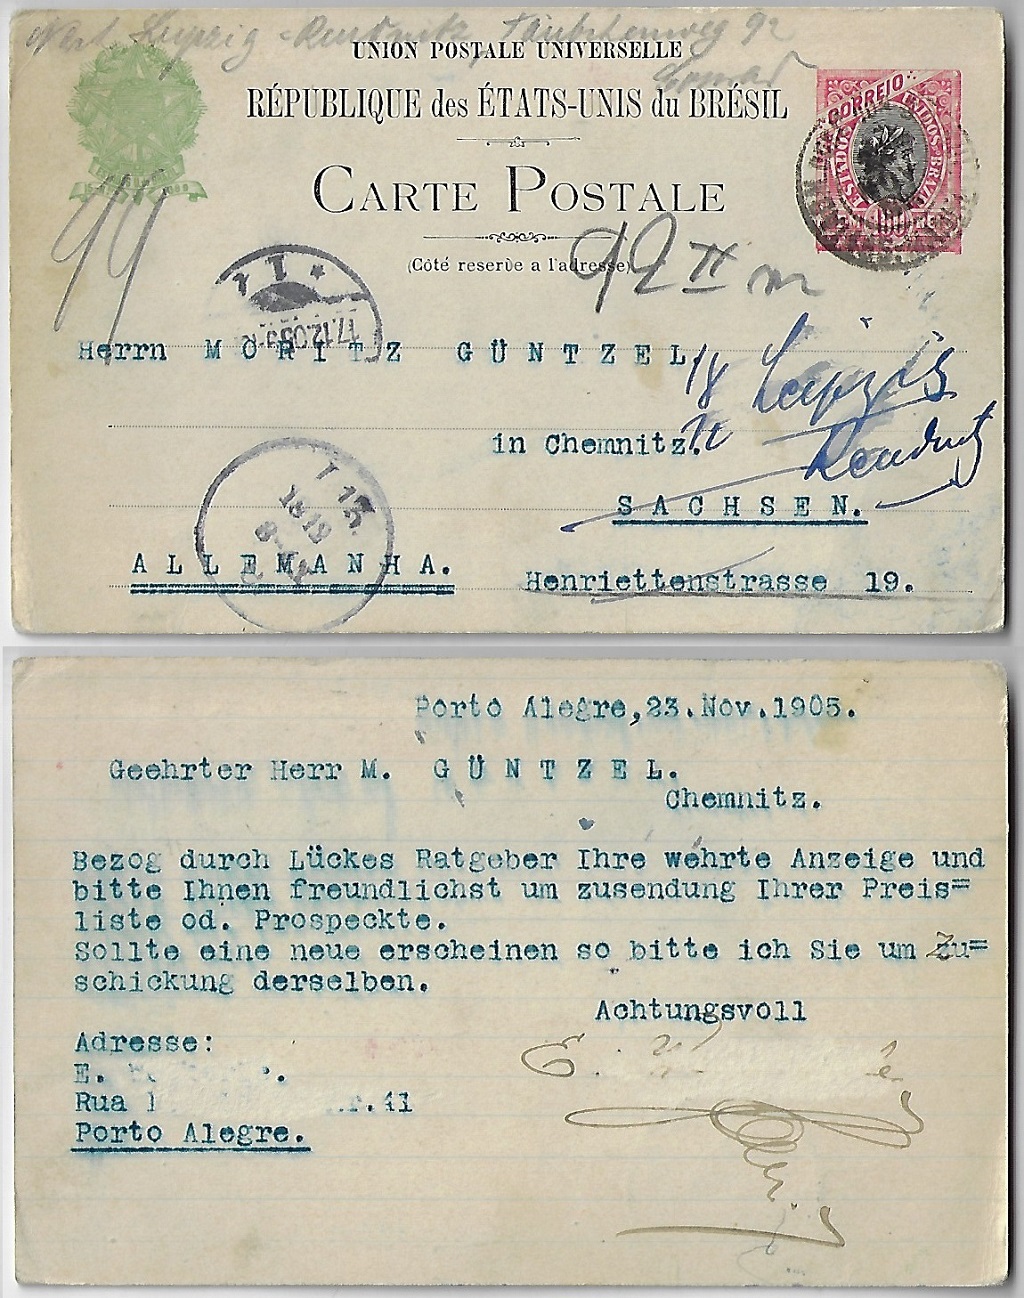 Leipzig - Reudnitz, Täubchenweg 92
UNION POSTALE UNIVERSELLE
RÉPUBLIQUE des ÉTATS-UNIS du BRÉSIL
CARTE POSTALE
(Côté reservè a l'adresse)
CORREIO
ESTADOS UNIDOS BRAZIL
92 II
17.12.05
Herrn MORITZ GÜNTZEL
18 Leipzig
in Chemnitz.
Reudnitz
SACHSEN.
ALLEMANHA.
Henriettenstrasse 19.
Porto Alegre, 23. Nov. 1905.
Geehrter Herr M. GÜNTZEL.
Chemnitz.
Bezog durch Lückes Ratgeber Ihre wehrte Anzeige und
bitte Ihnen freundlichst um zusendung Ihrer Preis=
liste od. Prospeckte.
Sollte eine neue erscheinen so bitte ich Sie um Zu=
schickung derselben.
Achtungsvoll
Adresse:
E.
E.
Rua
41
Porto Alegre.